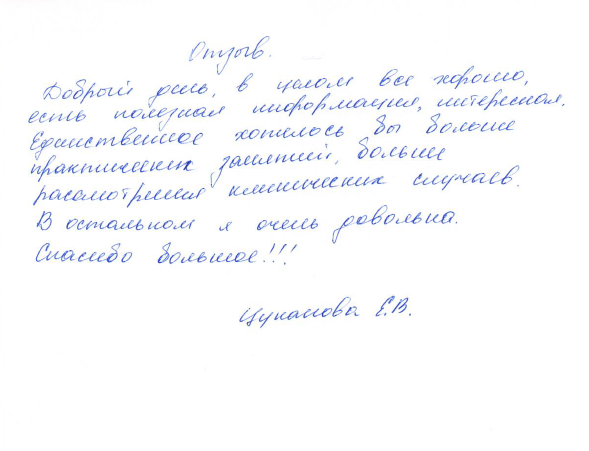 Отзыв.
Добрый день, в целом все хорошо,
есть полезная информация, интересная.
Единственное хотелось бы больше
практических занятий, больше
рассмотрения клинических случаев.
В остальном я очень довольна.
Спасибо большое!!!
Цуканова Е.В.